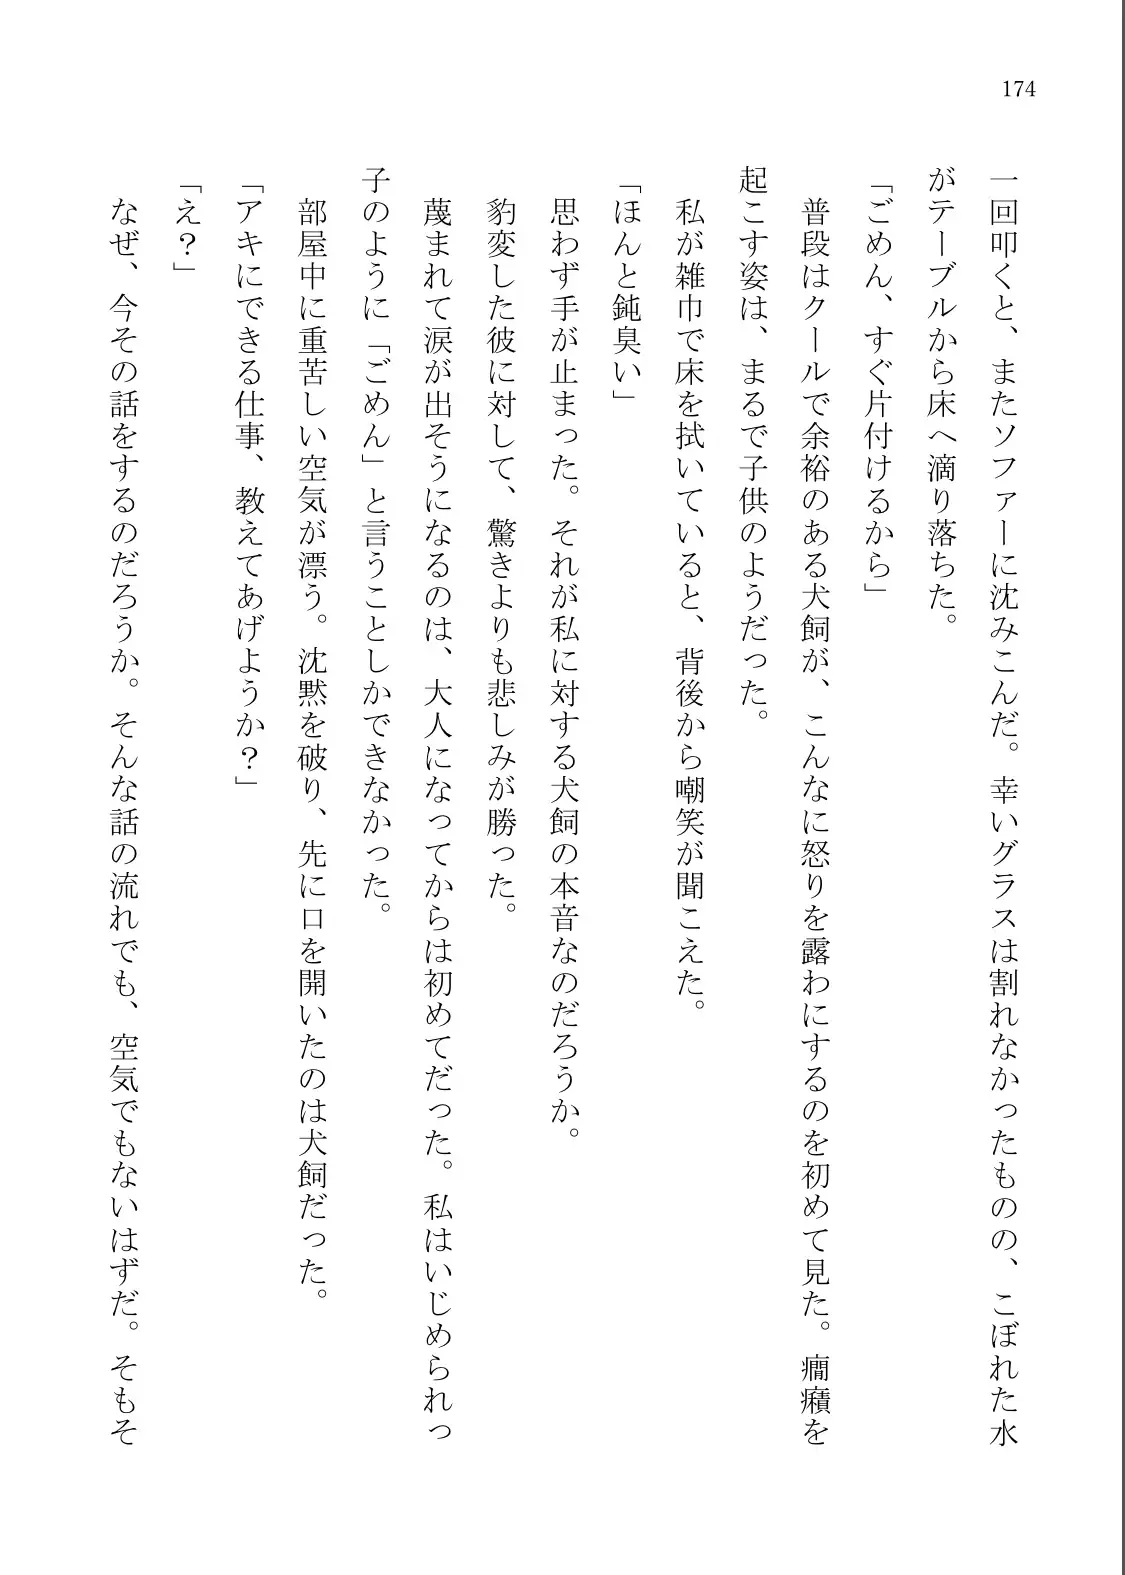 174
一回叩くと、またソファーに沈みこんだ。幸いグラスは割れなかったものの、こぼれた水
がテーブルから床へ滴り落ちた。
「ごめん、すぐ片付けるから」
普段はクールで余裕のある犬飼が、こんなに怒りを露わにするのを初めて見た。癇癪を
起こす姿は、まるで子供のようだった。
私が雑巾で床を拭いていると、背後から嘲笑が聞こえた。
「ほんと鈍臭い」
思わず手が止まった。それが私に対する犬飼の本音なのだろうか。
豹変した彼に対して、驚きよりも悲しみが勝った。
蔑まれて涙が出そうになるのは、大人になってからは初めてだった。私はいじめられっ
子のように「ごめん」と言うことしかできなかった。
部屋中に重苦しい空気が漂う。沈黙を破り、先に口を開いたのは犬飼だった。
「アキにできる仕事、教えてあげようか?」
「え?」
なぜ、今その話をするのだろうか。そんな話の流れでも、空気でもないはずだ。そもそ